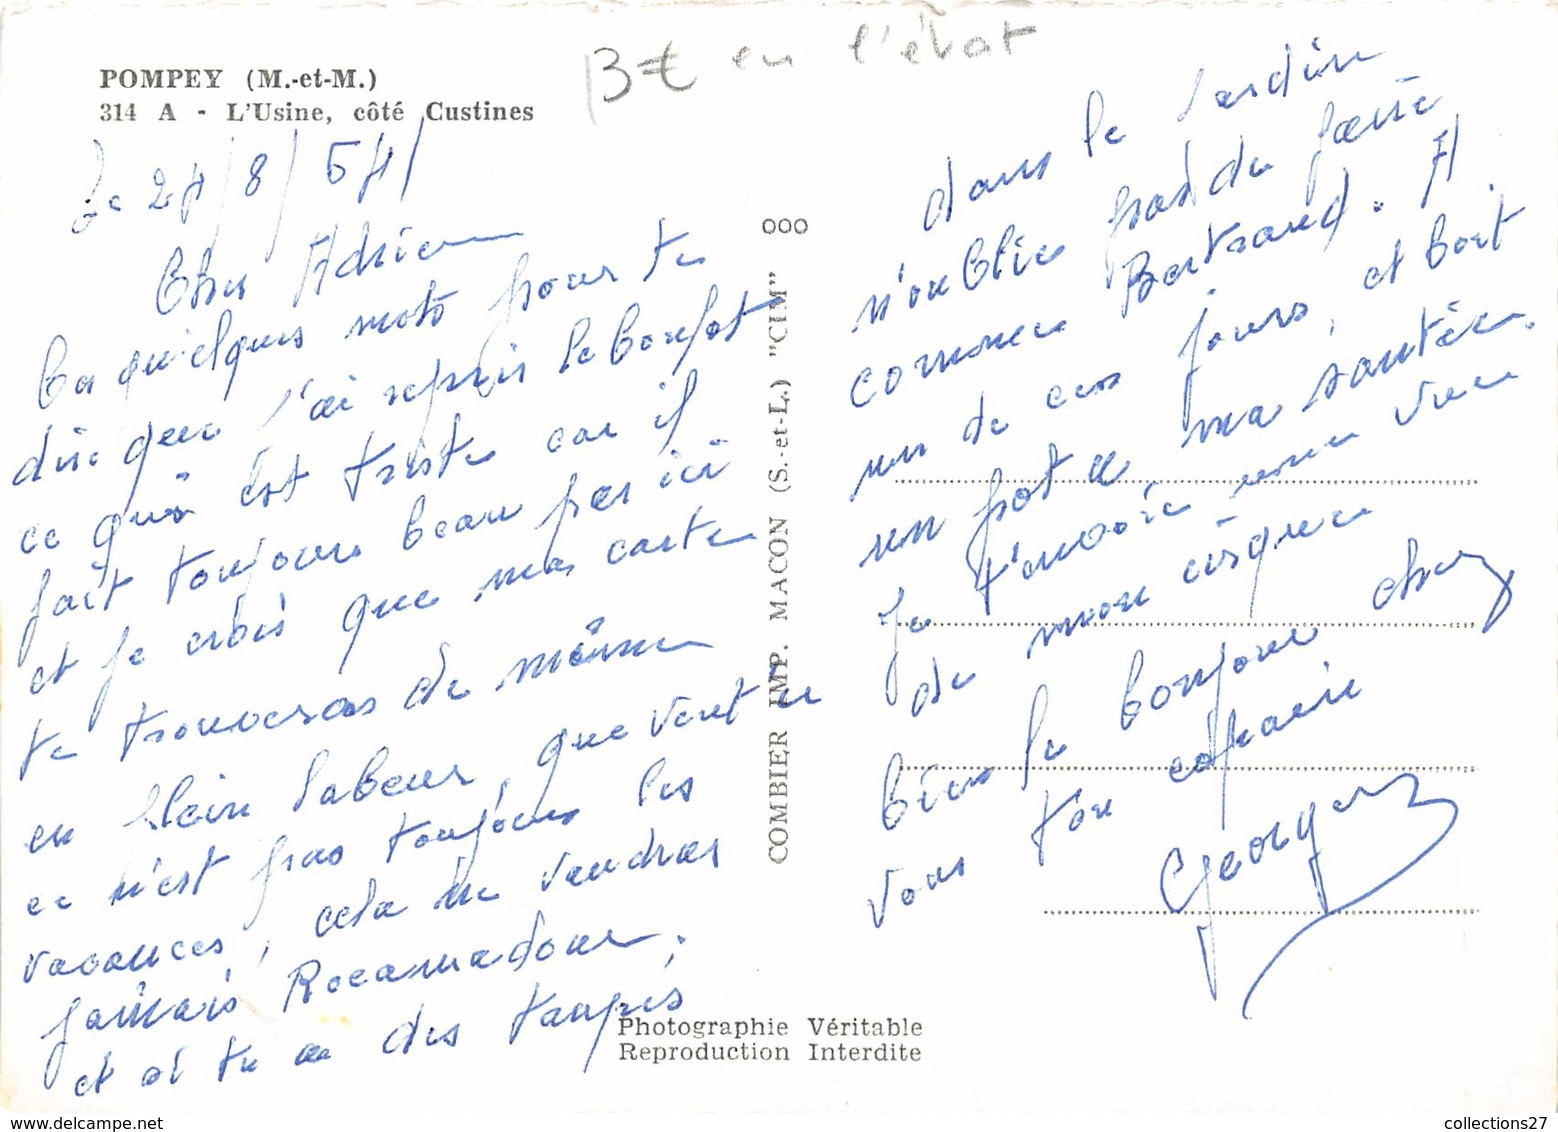 POMPEY (M.-et-M.)
314 A - L'Usine, côté Custines
3€ en l'état
Le 24/8/54
Cher Adrien
Ces quelques mots pour te
dire que j'ai repris le boulot
ce qui est triste car il
fait toujours beau par ici
et je crois que ma carte
te trouveras de même
en plein labeur, que veut tu
ce n'est pas toujours les
vacances, cela ne vaudras
jamais Rocamadour,
et si tu a des taupes
dans le jardin
n'oublie pas de faire
comme Bertrand. A
un de ces jours, et boit
un pot a ma santée.
Je t'envoie une vue
de mon cirque
bien le bonjour chez
vous ton copain
Georges
ooo
COMBIER IMP. MACON (S.-et-L.) "CIM"
Photographie Véritable
Reproduction Interdite
collections27